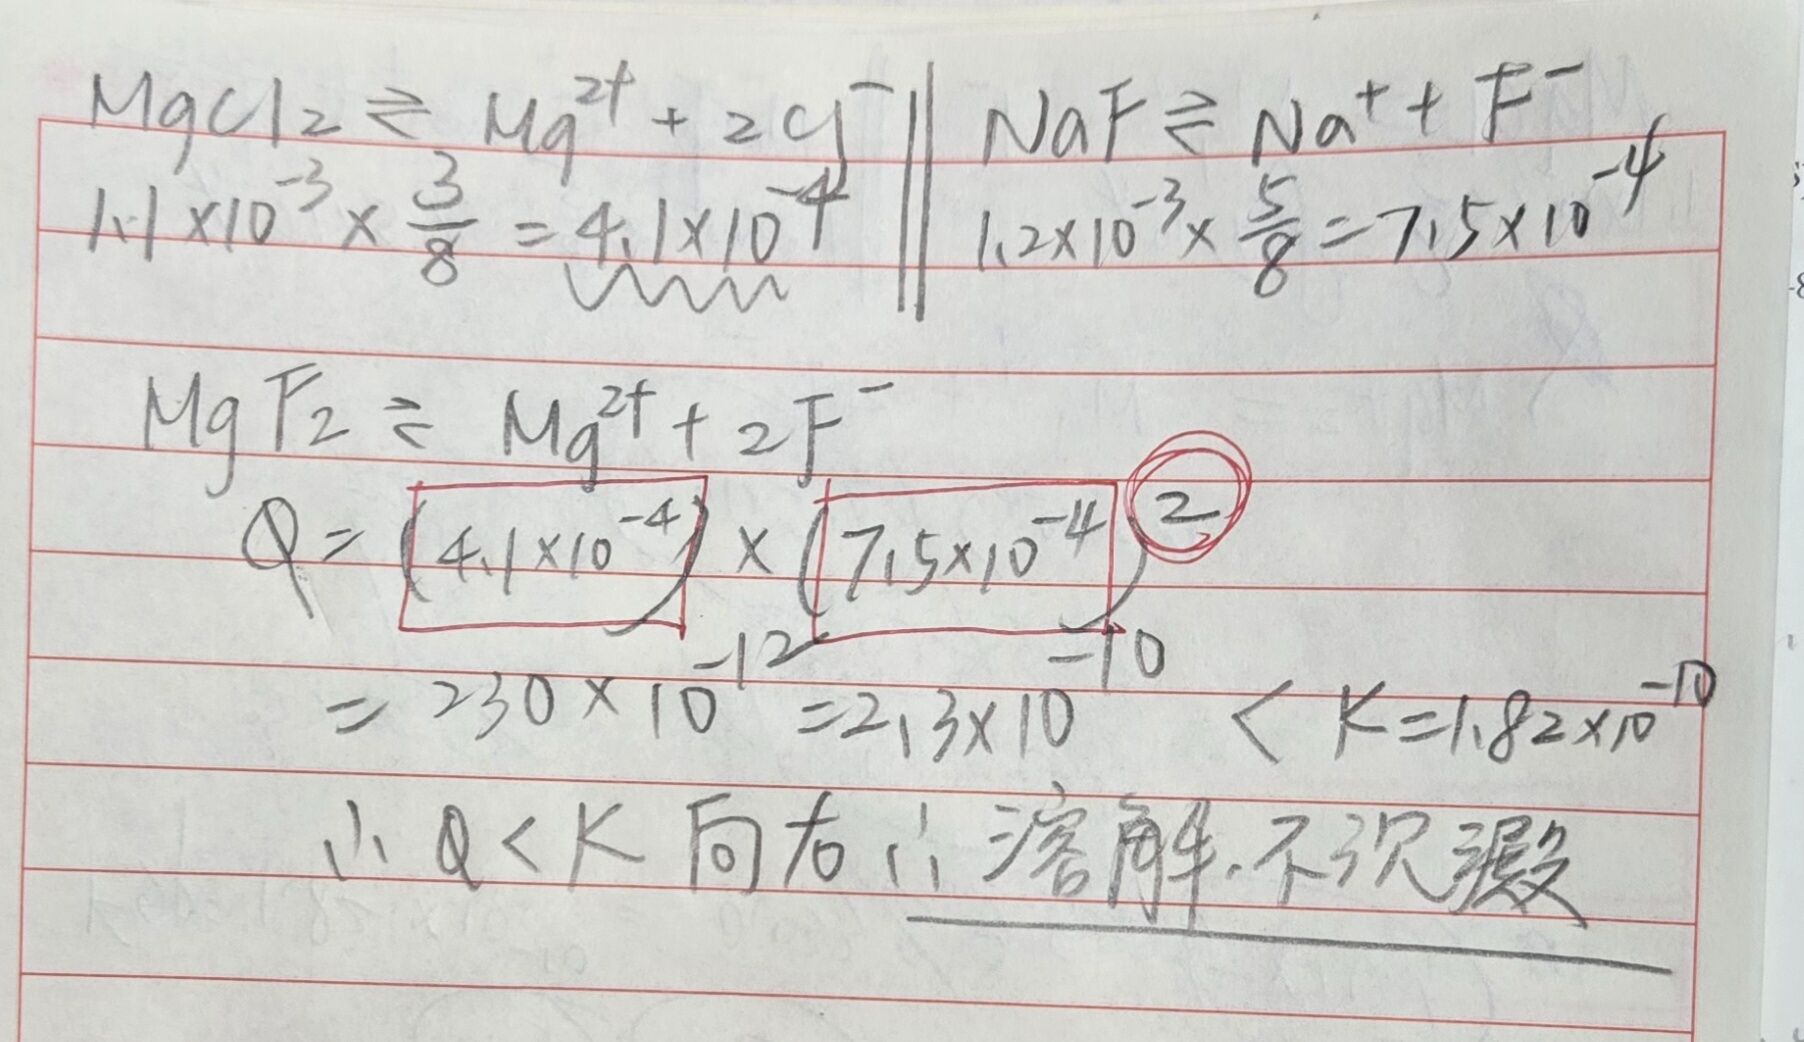 MgCl₂ ⇌ Mg²⁺ + 2Cl⁻ || NaF ⇌ Na⁺ + F⁻
1.1×10⁻³ × 3/8 = 4.1×10⁻⁴ || 1.2×10⁻³ × 5/8 = 7.5×10⁻⁴
MgF₂ ⇌ Mg²⁺ + 2F⁻
Q = (4.1×10⁻⁴) × (7.5×10⁻⁴)²
= 230×10⁻¹² = 2.3×10⁻¹⁰ < K=1.82×10⁻¹⁰
∴ Q < K 向右 ∴ 溶解.不沉澱